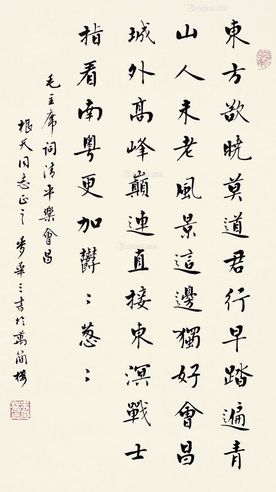 東方欲曉莫道君行早踏遍青
山人未老風景這邊獨好會昌
城外高峰巔連直接東溟戰士
指看南粵更加欝〻葱〻
毛主席詞清平樂會昌
根天同志正之 麥華三書於萬簡樓